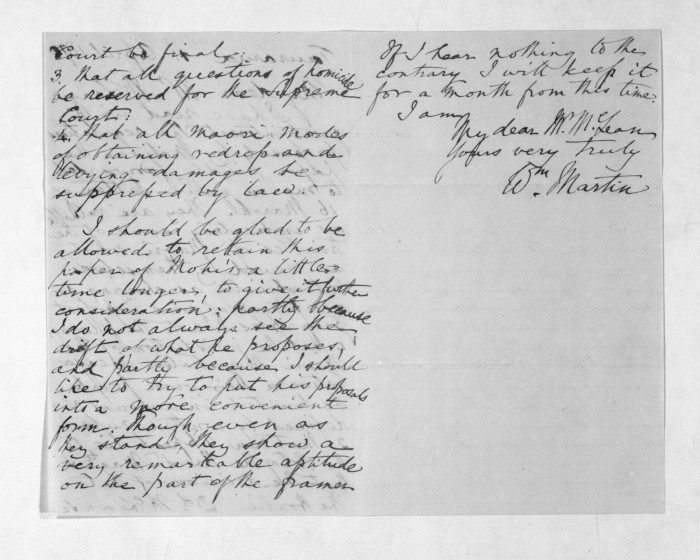 Court be final:
3. that all questions of homicide
be reserved for the Supreme
Court:
4. that all maori modes
of obtaining redress and
levying damages be
suppressed by law.
I should be glad to be
allowed to retain this
paper of Mohi's a little
time longer, to give it further
consideration: partly because
I do not always see the
drift of what he proposes,
and partly because I should
like to try to put his proposals
into a more convenient
form, though even as
they stand they show a
very remarkable aptitude
on the part of the framer
If I hear nothing to the
contrary I will keep it
for a month from this time.
I am
My dear Mr McLean
Yours very truly
Wm Martin